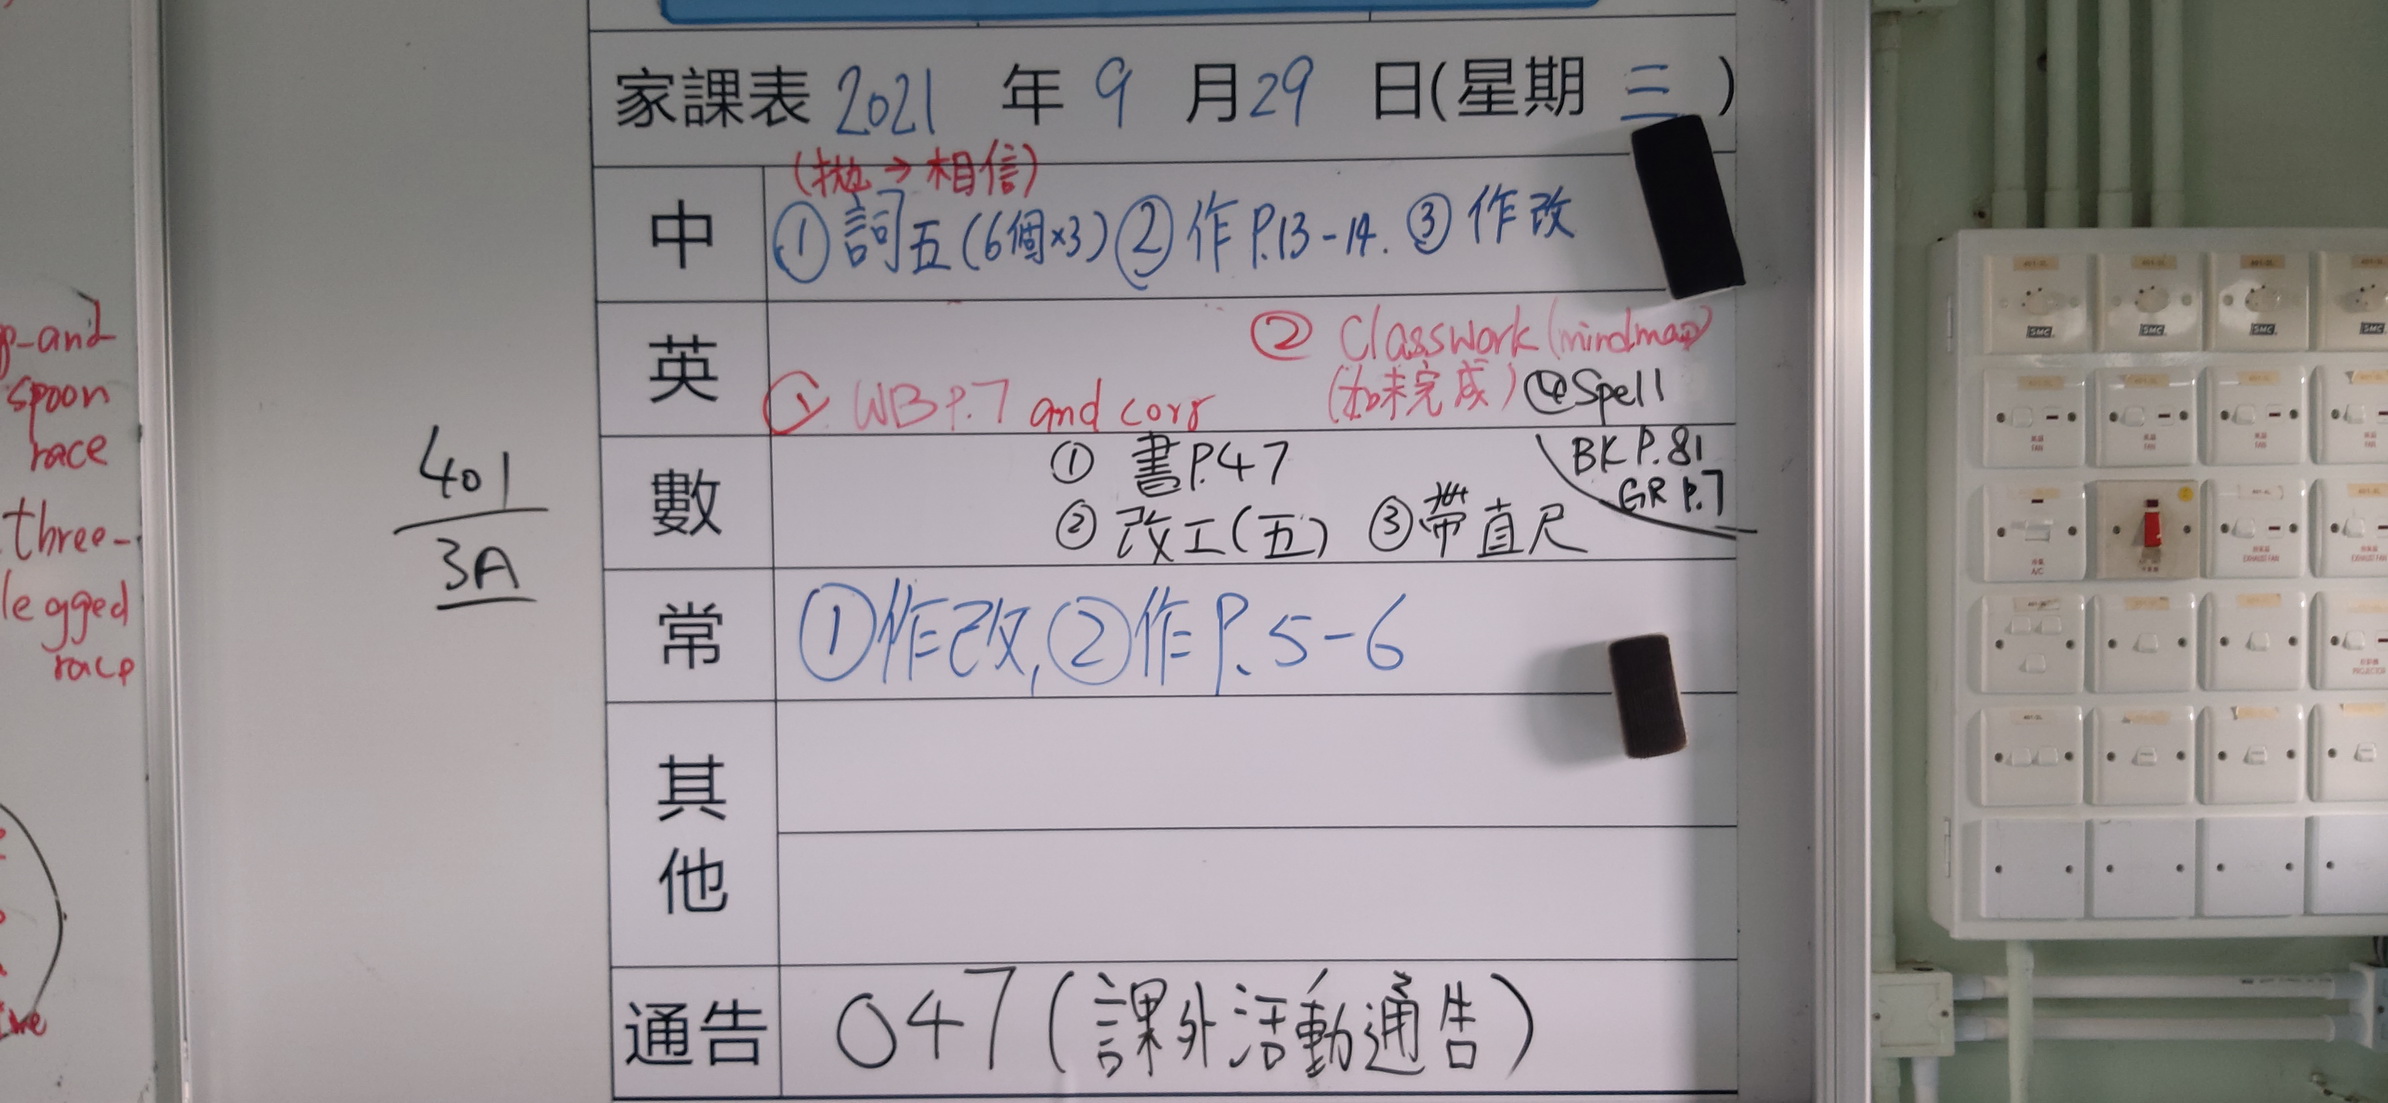 家課表 2021 年 9 月 29 日(星期 三 )
中
(拋→相信)
① 詞五(6個×3) ② 作P.13-14. ③ 作改
英
② Classwork (mindmap)
① WB P.7 and corr
(如未完成) ④ Spell
BK P.81
GR P.7
數
① 書P.47
② 改工(五) ③ 帶直尺
常
① 作改, ② 作P.5-6
其他
通告
047 (課外活動通告)
401
3A
p-and
spoon
race
three-
legged
race
SMC
SMC
SMC
SMC
FAN
FAN
A/C
EXHAUST FAN
PROJECTOR